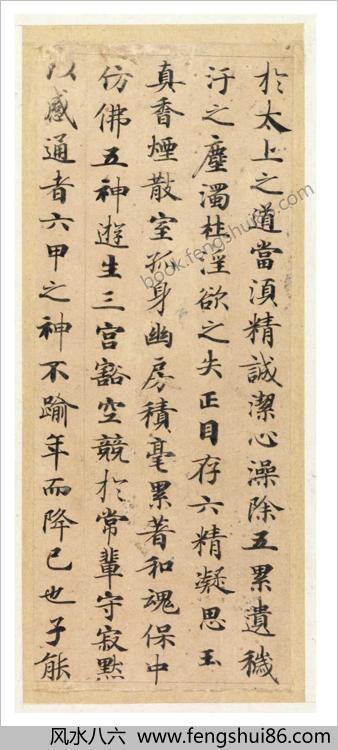 於太上之道當須精誠潔心澡除五累遺穢
汙之塵濁杜淫欲之失正目存六精凝思玉
真香煙散室孤身幽房積毫累著和魂保中
仿佛五神遊生三宮豁空競於常輩守寂默
以感通者六甲之神不踰年而降已也子能
book.fengshui86.com
风水八六 www.fengshui86.com